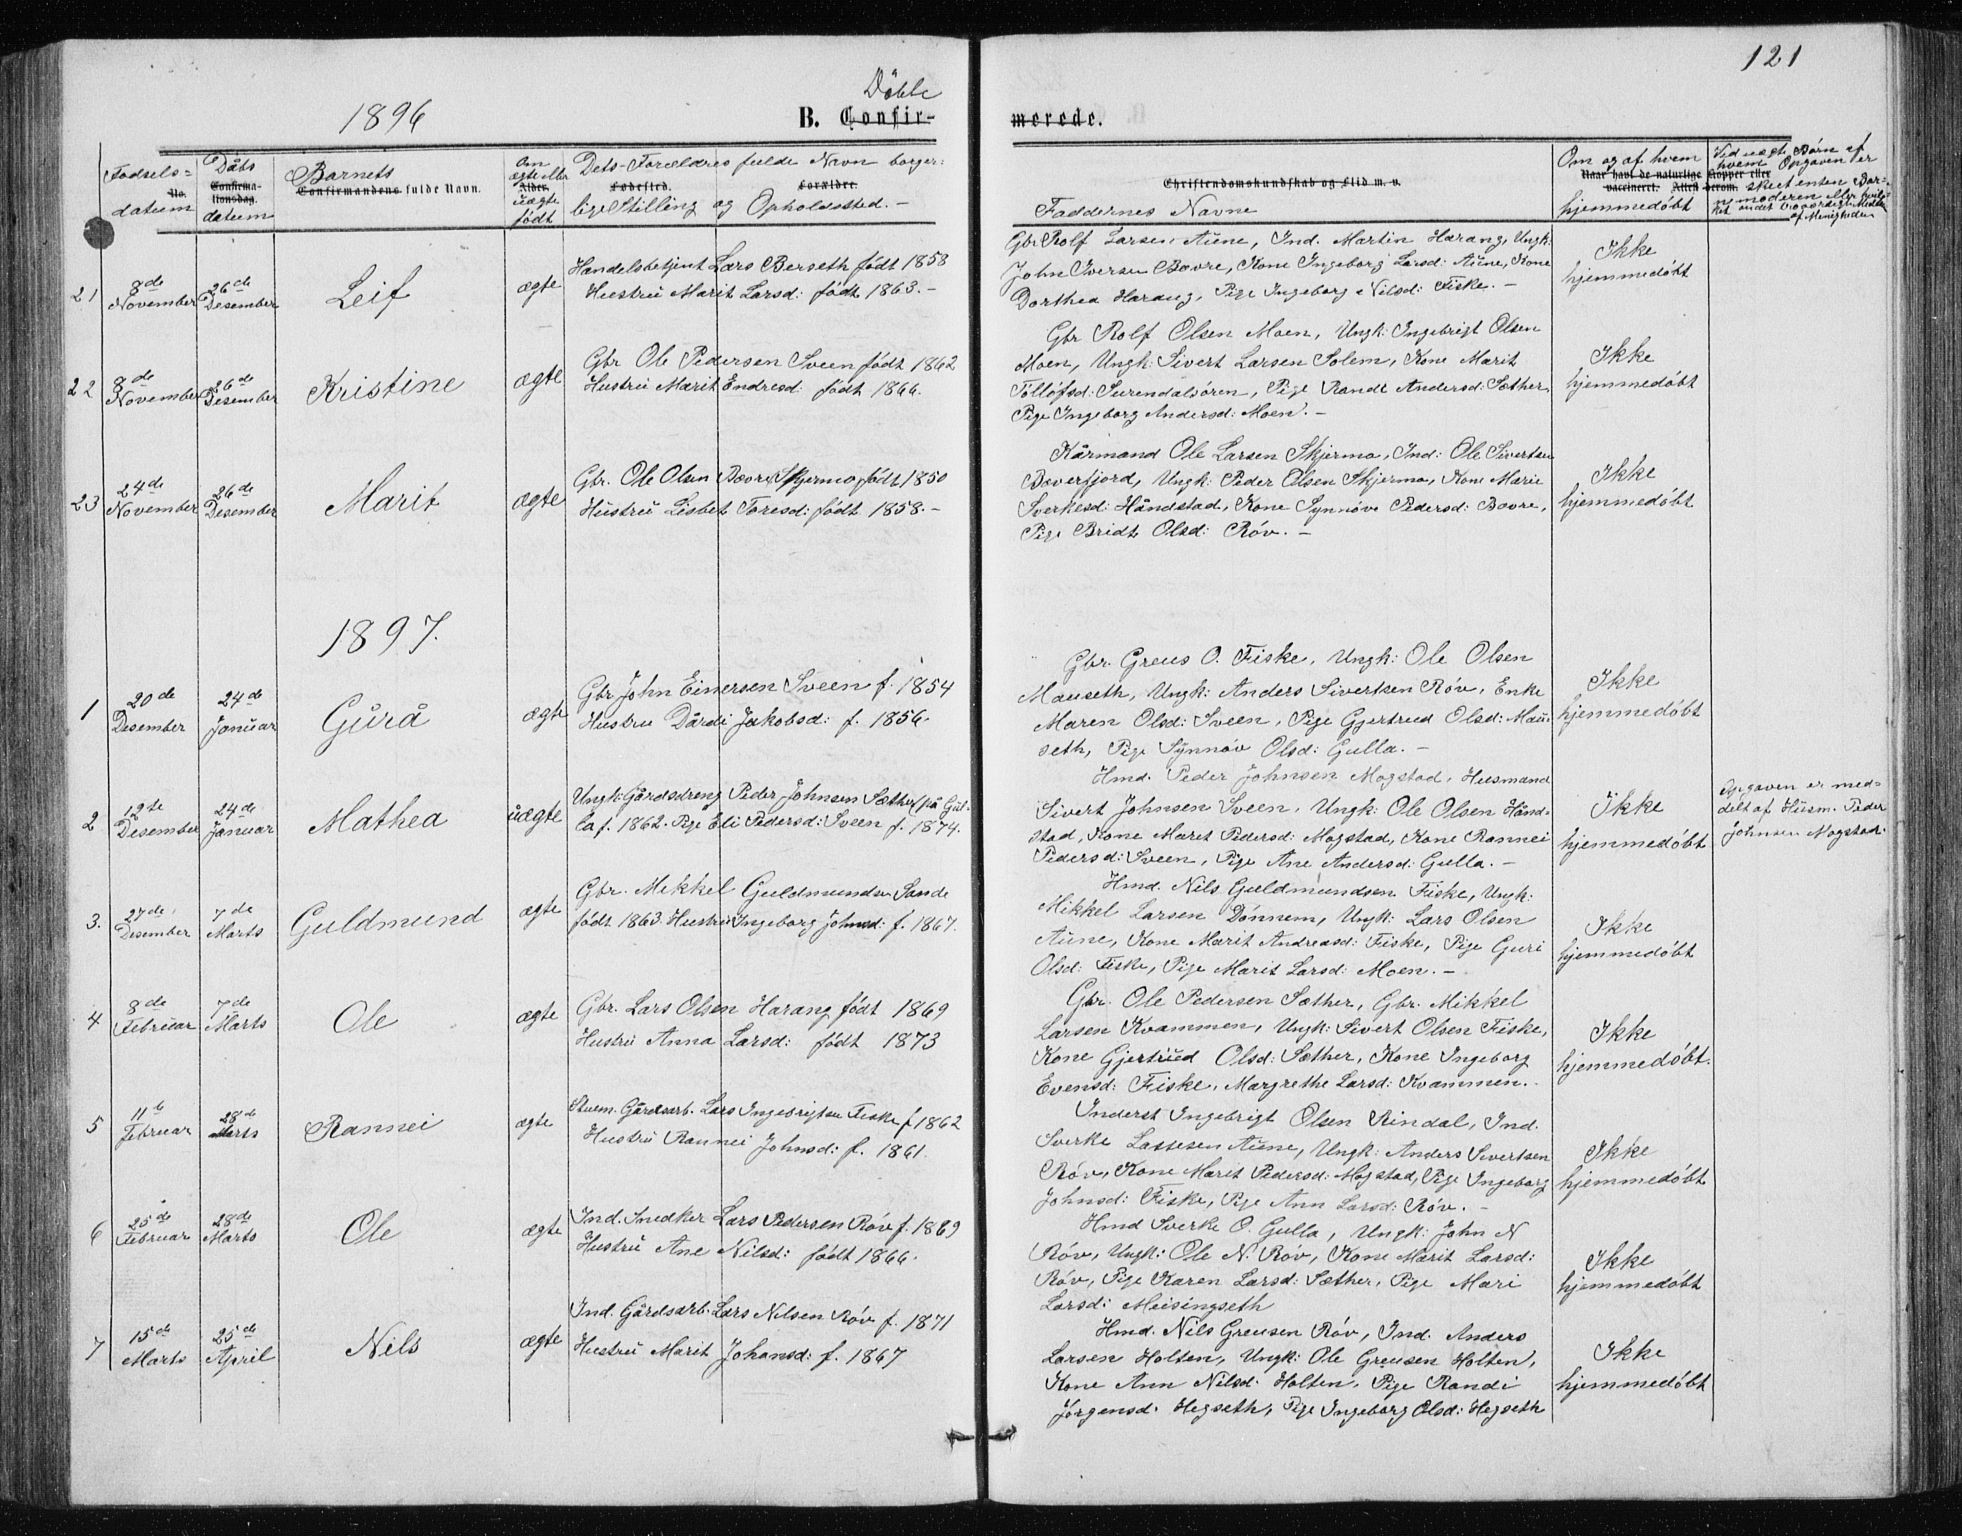 121
1896
Döbte
B. Confir-
merede.
Fødsels-
No.
datum
Dåbs
Confirma-
tionsdag.
datum
Barnets
Confirmandens fulde Navn.
Om
ægte eller
Alder.
uægte
født
Dets Forældres fulde Navn borger-
Fødested.
Forældre.
lige Stilling og Opholdssted. -
Christendomskundskab og Flid m. v.
Faddernes Navne
Om og af hvem
Naar havt de naturlige Kopper eller
vaccineret. Attest derom.
hjemmedöbt
Ved uægte Børn af
hvem Opgaven er
skeet enten Bar-
nemoderen eller
af Menigheden
21
8de
November
26de
Desember
Leif
ægte
Handelsbetjent Lars Berseth født 1858
Hustru Marit Larsd: født 1863. -
Gbr Rolf Larsen Aune, Ind. Martin Harang, Ungk:
John Iversen Bøvre, Kone Ingeborg Larsd: Aune, Kone
Dorthea Harang, Pige Ingeborg Nilsd: Fiske. -
Ikke
hjemmedöbt
22
8de
November
26de
Desember
Kristine
ægte
Gbr Ole Pedersen Sveen født 1862
Hustru Marit Endresd: født 1866.
Gbr Rolf Olsen Moen, Ungk: Ingebrigt Olsen
Moen, Ungk: Sivert Larsen Solem, Kone Marit
Tollöfsd: Surendalsören, Pige Randi Andersd: Sæther,
Pige Ingeborg Andersd: Moen. -
Ikke
hjemmedöbt
23
24de
November
26de
Desember
Marit
ægte
Gbr. Ole Olsen Bøvre Skjermo født 1850
Hustru Lisbet Toresd: født 1858. -
Kårmand Ole Larsen Skjermo, Ind: Ole Sivertsen
Bøverfjord, Ungk: Peder Olsen Skjermo, Kone Marie
Sverkesd: Håndstad, Kone Synnöve Pedersd: Bøvre,
Pige Bridt Olsd: Röv. -
Ikke
hjemmedöbt
1897.
1
20de
Desember
24de
Januar
Gurå
ægte
Gbr John Einersen Sveen f. 1854
Hustru Dårdi Jakobsd: f. 1856.
Gbr. Greus O. Fiske, Ungk: Ole Olsen
Mauseth, Ungk: Anders Sivertsen Röv, Enke
Maren Olsd: Sveen, Pige Gjertrud Olsd: Mau-
seth, Pige Synnöv Olsd: Gulla. -
Ikke
hjemmedöbt
2
12te
Desember
24de
Januar
Mathea
uægte
Ungk: Gårdsdreng Peder Johnsen Sæther (på Gul-
la f. 1862. Pige Eli Pedersd: Sveen f. 1874.
Hmd. Peder Johnsen Mogstad, Husmand
Sivert Johnsen Sveen, Ungk: Ole Olsen Hånd-
stad, Kone Marit Pedersd: Mogstad, Kone Rannei
Pedersd: Sveen, Pige Ane Andersd: Gulla. -
Ikke
hjemmedöbt
Opgaven er med-
delt af Husm. Peder
Johnsen Mogstad.
3.
27de
Desember
7de
Marts
Guldmund
ægte
Gbr. Mikkel Guldmundsen Sande
født 1863 Hustru Ingeborg Johnsd: f. 1867.
Hmd. Nils Guldmundsen Fiske, Ungk:
Mikkel Larsen Dönnem, Ungk: Lars Olsen
Aune, Kone Marit Andreasd: Fiske, Pige Guri
Olsd: Fiske, Pige Marit Larsd: Moen. -
Ikke
hjemmedöbt
4
8de
Februar
7de
Marts
Ole
ægte
Gbr. Lars Olsen Harang født 1869
Hustru Anna Larsd: født 1873
Gbr. Ole Pedersen Sæther, Gbr. Mikkel
Larsen Kvammen, Ungk: Sivert Olsen Fiske,
Kone Gjertrud Olsd: Sæther, Kone Ingeborg
Evensd: Fiske, Margrethe Larsd: Kvammen.
Ikke
hjemmedöbt.
5
11te
Februar
28de
Marts
Rannei
ægte
Gårdsarb. Lars Ingebrigtsen Fiske f 1862
Hustru Rannei Johnsd: f. 1861.
Inderst Ingebrigt Olsen Rindal, Ind.
Sverke Lassesen Aune, Ungk: Anders Sivertsen
Röv, Kone Marit Pedersd: Mogstad, Pige Ingeborg
Johnsd: Fiske, Pige Ann Larsd: Röv. -
Ikke
hjemmedöbt
6
25de
Februar
28de
Marts
Ole
ægte
Ind. Snedker Lars Pedersen Röv f. 1869
Hustru Ane Nilsd: født 1866.
Hmd Sverke O. Gulla, Ungk: John N
Röv, Ungk: Ole N. Röv, Kone Marit Larsd:
Röv, Pige Karen Larsd: Sæther, Pige Mari
Larsd: Meisingseth
Ikke
hjemmedöbt
7
15de
Marts
25de
April
Nils
ægte
Ind. Gårdsarb. Lars Nilsen Röv f. 1871
Hustru Marit Johansd: f. 1867
Hmd. Nils Greusen Röv, Ind. Anders
Larsen Holten, Ungk: Ole Greusen Holten,
Kone Ann Nilsd: Holten, Pige Randi
Jörgensd: Hegseth, Pige Ingeborg Olsd: Hegseth
Ikke
hjemmedöbt